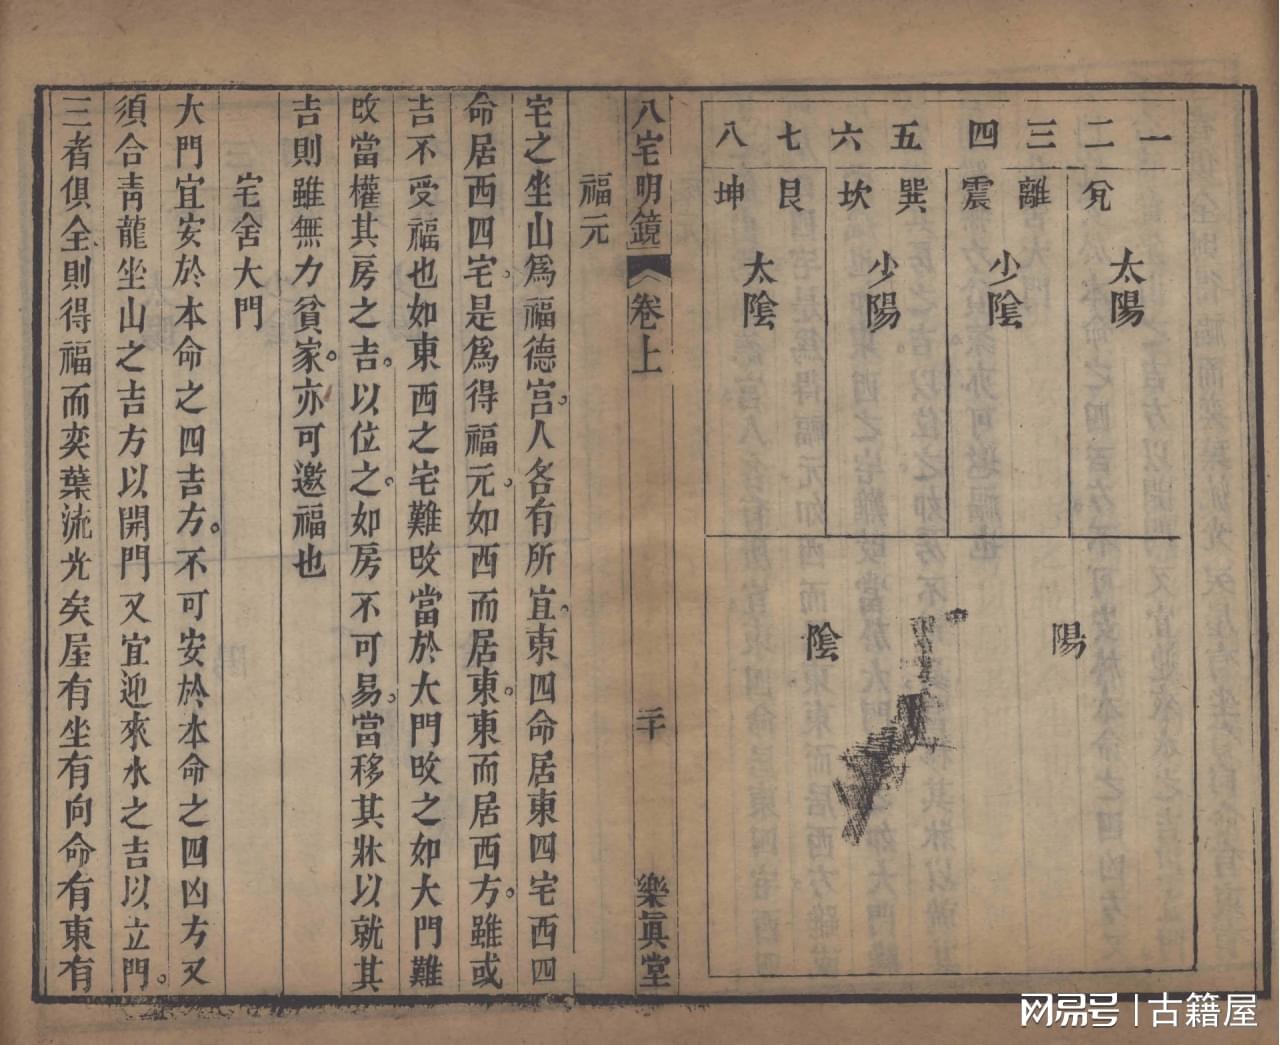 一 二 三 四 五 六 七 八
兌 離 震 巽 坎 艮 坤
太陽 少陰 少陽 太陰
陽 陰
八宅明鏡 卷上 二十 樂眞堂
福元
宅之坐山爲福德宮。人各有所宜。東四命居東四宅西四
命居西四宅。是爲得福元。如西而居東。東而居西方。雖或
吉不受福也如東西之宅難改當於大門改之如大門難
改當權其房之吉。以位之。如房不可易。當移其牀以就其
吉則雖無力貧家。亦可邀福也
宅舍大門
大門宜安於本命之四吉方。不可安於本命之四凶方又
須合青龍坐山之吉方以開門又宜迎來水之吉以立門。
三者俱全則得福而奕葉流光矣屋有坐有向命有東有
网易号 | 古籍屋